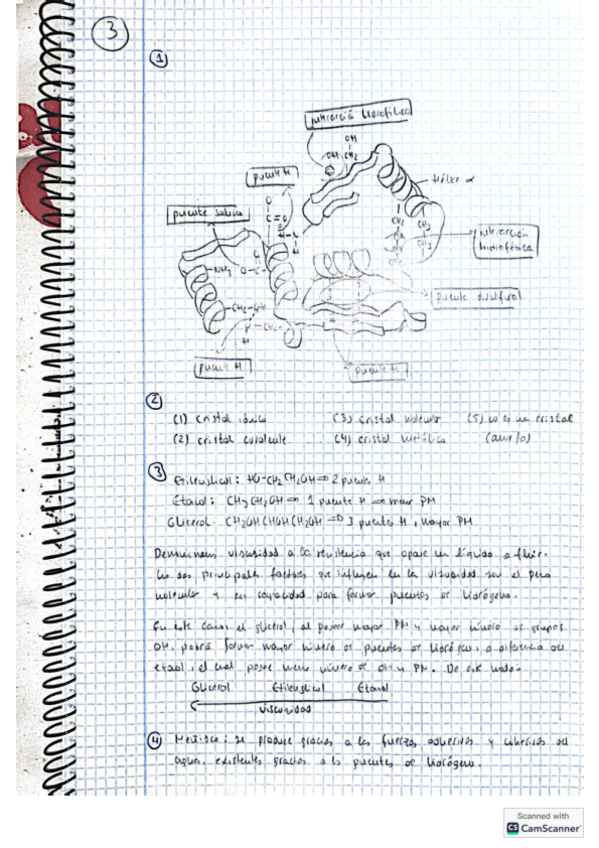 3
1
interacció hidrofílica
OH
OH CH2
puente H
Hélice α
puente salino
C=O
H-N
H
interacción
hidrofóbica
CH2
CH3
CH3
NH3
O-C-
puente disulfuro
CH2-OH
CH2-
H
puente H
puente H
2
(1) cristal iónico (3) cristal molecular (5) no es un cristal
(2) cristal covalente (4) cristal metálico (amorfo)
3 Etilenglicol: HO-CH2CH2OH ⇒ 2 puente H
Etanol: CH3CH2OH ⇒ 1 puente H menor PM
Glicerol: CH2OHCHOHCH2OH ⇒ 3 puentes H, mayor PM
Denominamos viscosidad a la resistencia que opone un líquido a fluir.
Los dos principales factores que influyen en la viscosidad son el peso
molecular y su capacidad para formar puentes de hidrógeno.
En este caso el glicerol, al poseer mayor PM y mayor número de grupos
OH, podrá formar mayor número de puentes de hidrógeno, a diferencia del
etanol, el cual posee menor número de OH y PM. De este modo:
Glicerol Etilenglicol Etanol
viscosidad
4 Menisco: se produce gracias a las fuerzas adhesivas y cohesivas del
agua, existentes gracias a los puentes de hidrógeno.
Scanned with
CS CamScanner